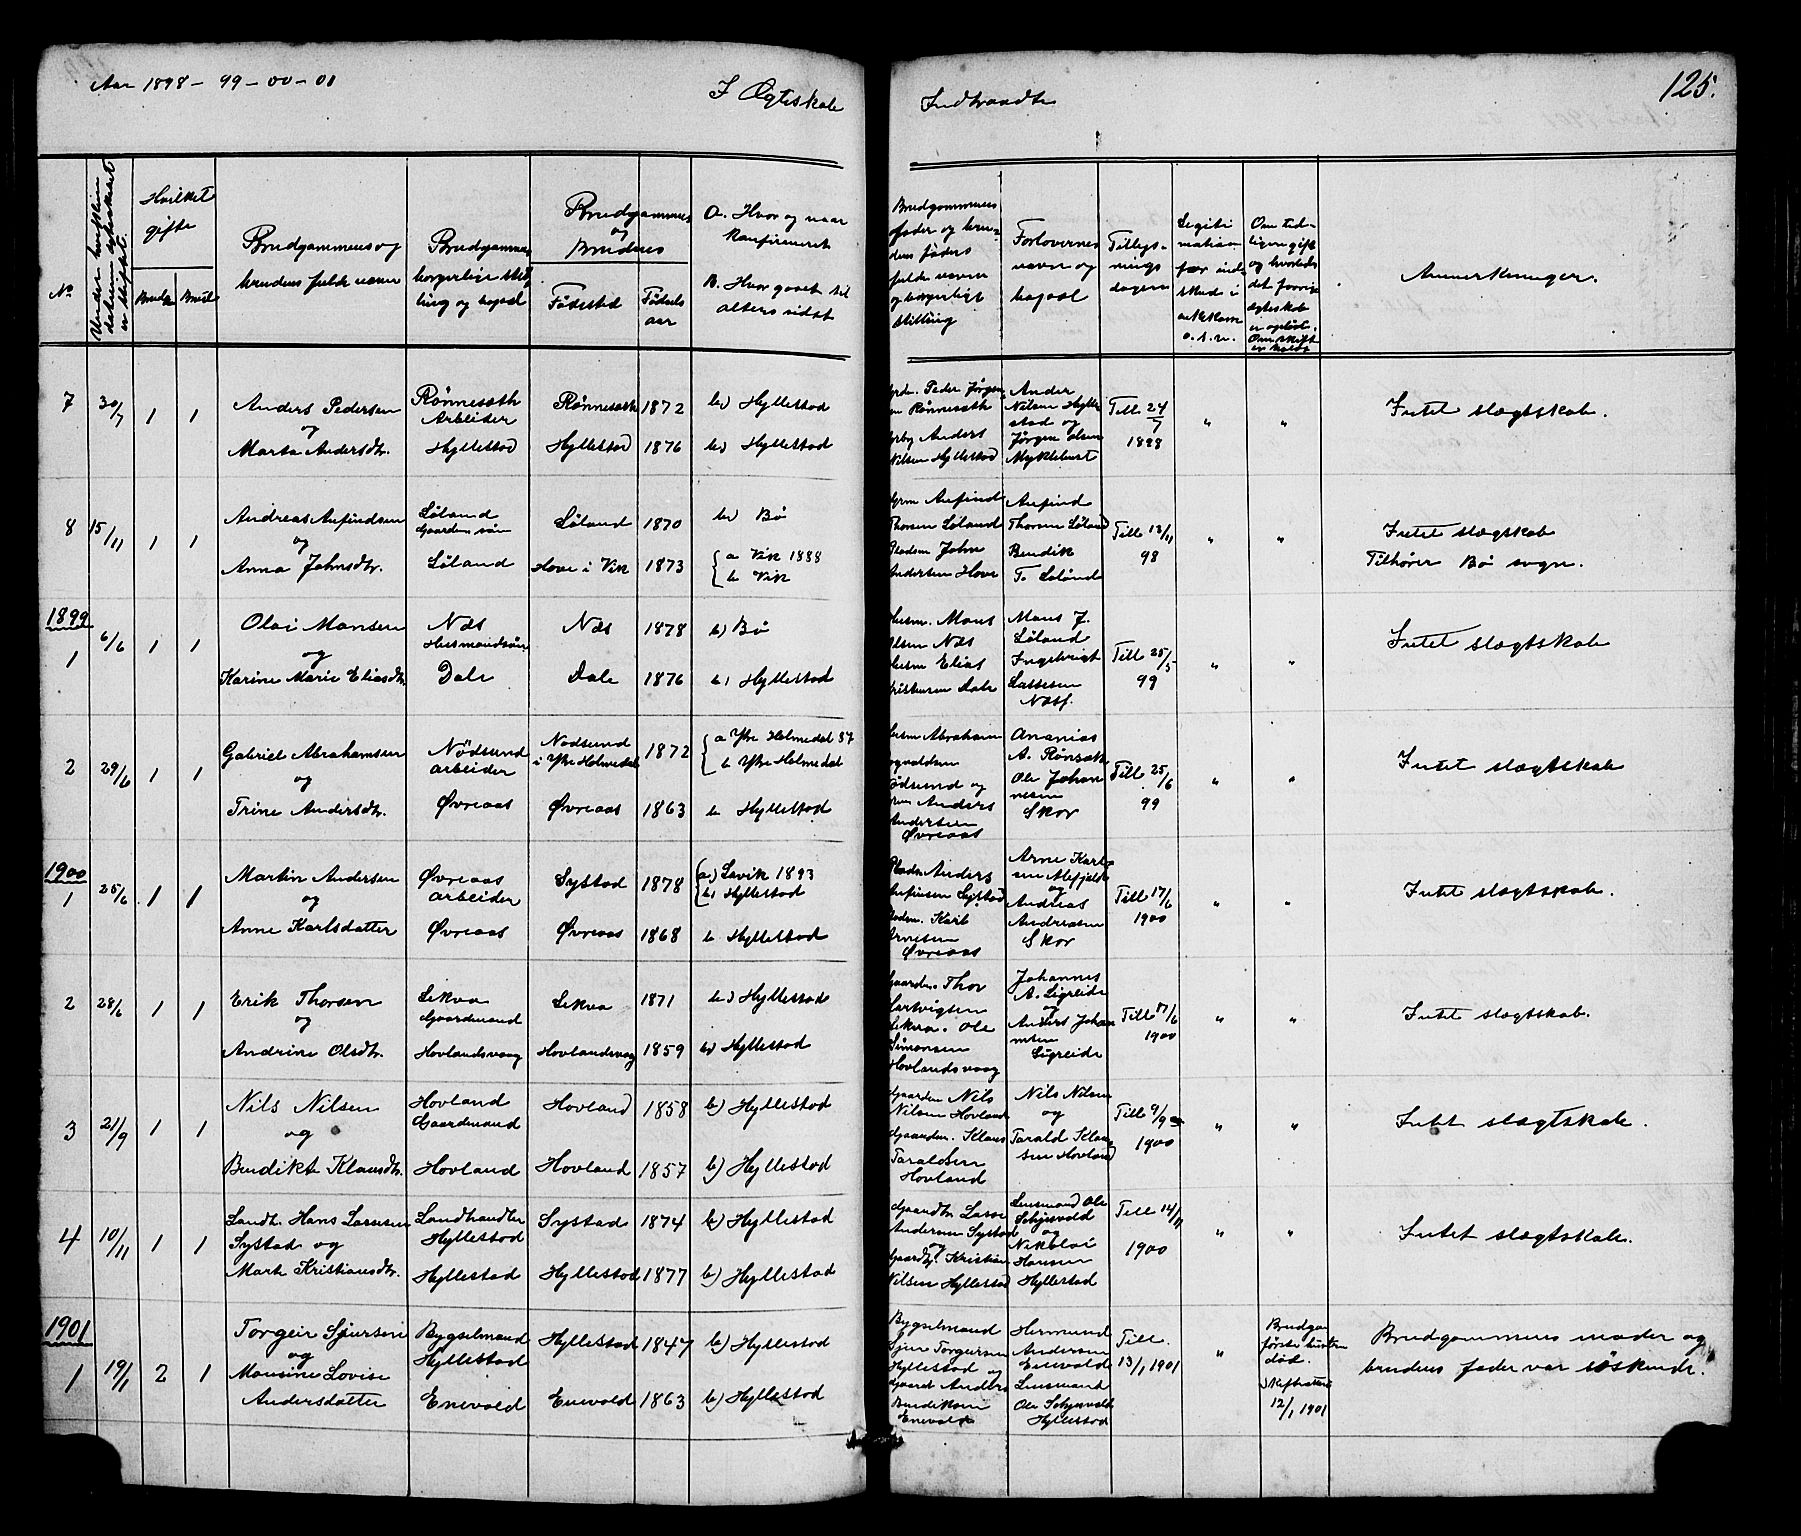 Aar 1898 – 99 – 00 – 01
I Ægteskab
Indtraadte
125.
No
Hvilket
gifte
Brudg
Brud
Brudgommens og
brudens fulde navn
Brudgommens
borgerlige stil-
ling og bopæl
Brudgommens
og
Brudens
Fødested
Fødsels
aar
a. Hvor og naar
konfirmeret
b. Hvor gaaet til
alters sidst
Brudgommens
fader og bru-
dens faders
fulde navn
og borgerlige
stilling
Forlovernes
navn og
bopæl
Tillys-
nings
dagen
Legiti
mation
for ind-
skud i
enkekasse
o.s.v.
Om tid-
ligere gift
og hvorledes
det forrige
ægteskab
er opløst.
Om skifte
er holdt
Anmerkninger.
7 30/7 1 1
Anders Pedersen
og
Marta Andersdtr.
Rønnesæth
Arbeider
Hyllestad
Rønneseth 1872
Hyllestad 1876
b) Hyllestad
b) Hyllestad
Peder Jørgen
Rønnesæth
Anders
Nilsen Hyllestad
Ander
Nilsen Hylle
stad og
Jørgen Olsen
Myklebust
Till 24/7
1898
" "
Intet slægtskab.
8 15/11 1 1
Andreas Anfindsen
og
Anna Johnsdtr.
Løland
Gaardm. søn
Løland
Løland 1870
Hove i Vik 1873
b) Bø
a Vik 1888
b Vik
Anfind
Thorsen Løland
Pladsm John
Andersen Hove
Anfind
Thorsen Løland
Bendik
T. Løland
Till 13/11
98
" "
Intet slægtskab
Tilhører Bø sogn.
1899
1 6/6 1 1
Olai Monsen
og
Karine Marie Eliasdtr.
Næs
Husmandsøn
Dale
Næs 1878
Dale 1876
b) Bø
b) Hyllestad
Husm. Mons
Olsen Næs
Husm Elias
Kristensen Dale
Mons J.
Løland
Ingebrigt
Lassesen
Næss.
Till 25/5
99
" "
Intet slægtskab
2 29/6 1 1
Gabriel Abrahamsen
og
Trine Andersdtr.
Nødsund
arbeider
Øvreaas
Nødsund
i Ytre Holmedal 1872
Øvreaas 1863
a Ytre Holmedal 87
b Ytre Holmedal
b Hyllestad
Husm Abraham
Nødsund og
Anders
Andersen
Øvreaas
Ananias
A. Rønsæth
Ole Johan
nesen
Skor
Till. 25/6
99
" "
Intet slægtskab
1900
1 25/6 1 1
Martin Andersen
og
Anne Karlsdatter
Øvreaas
arbeider
Øvreaas
Systad 1878
Øvreaas 1868
a) Lavik 1893
b) Hyllestad
b Hyllestad
Pladsm Anders
Systad
Pladsm. Karl
Arnesen
Øvreaas
Arne Karl-
sen
og
Andreas
Andreasen
Skor
Till 17/6
1900
" "
Intet slægtskab.
2 28/6 1 1
Erik Thorsen
og
Andrine Olsdtr.
Lekva
Gaardmand
Hovlandsvaag
Lekva 1871
Hovlandsvaag 1859
b) Hyllestad
b) Hyllestad
Gaardm. Thor
Hartvigsen
Lekva. Ole
Simonsen
Hovlandsvaag
Johannes
A. Ligreide
og
Anders Johan
nesen
Ligreide
Till 17/6
1900
" "
Intet slægtskab.
3 21/9 1 1
Nils Nilsen
og
Bendikte Klausdtr.
Hovland
Gaardmand
Hovland
Hovland 1858
Hovland 1857
b) Hyllestad
b) Hyllestad
Gaardm Nils
Nilsen Hovland
Gaardm. Klaus
Taraldsen
Hovland
Nils Nilsen
og
Tarald Klau-
sen Hovland
Till 9/9
1900
" "
Intet slægtskab.
4 10/11 1 1
Landh. Hans Lassesen
Systad og
Marte Kristiansdtr.
Landhandler
Hyllestad
Hyllestad
Systad 1874
Hyllestad 1877
b) Hyllestad
b) Hyllestad
Gaardbr Lasse
Andersen Systad
og
Gaardbr. Kristian
Nilsen Hyllestad
Lensmand Ole
Schjesvold
og
Nikolai
Hansen
Hyllestad
Till 14/11
1900
" "
Intet slægtskab.
1901
1 19/1 2 1
Torgeir Sjursen
og
Monsine Lovise
Andersdatter
Bygselmand
Hyllestad
Enevold
Hyllestad 1847
Enevold 1863
b) Hyllestad
b) Hyllestad
Bygselmand
Sjur Torgersen
Hyllestad og
Gaardbr Anders
Bendiksen
Enevold
Hermund
Andersen
Enevold
Lensmand
Ole Schjesvold
Hyllestad
Till.
13/1 1901
"
Brudgom
første hustru
død.
Skifteattest
12/1 1901
Brudgommens moder og
brudens fader var søskende.